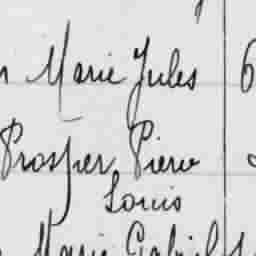 Marie Jules 6
Prosper Pierre
Louis
Marie Gabriel